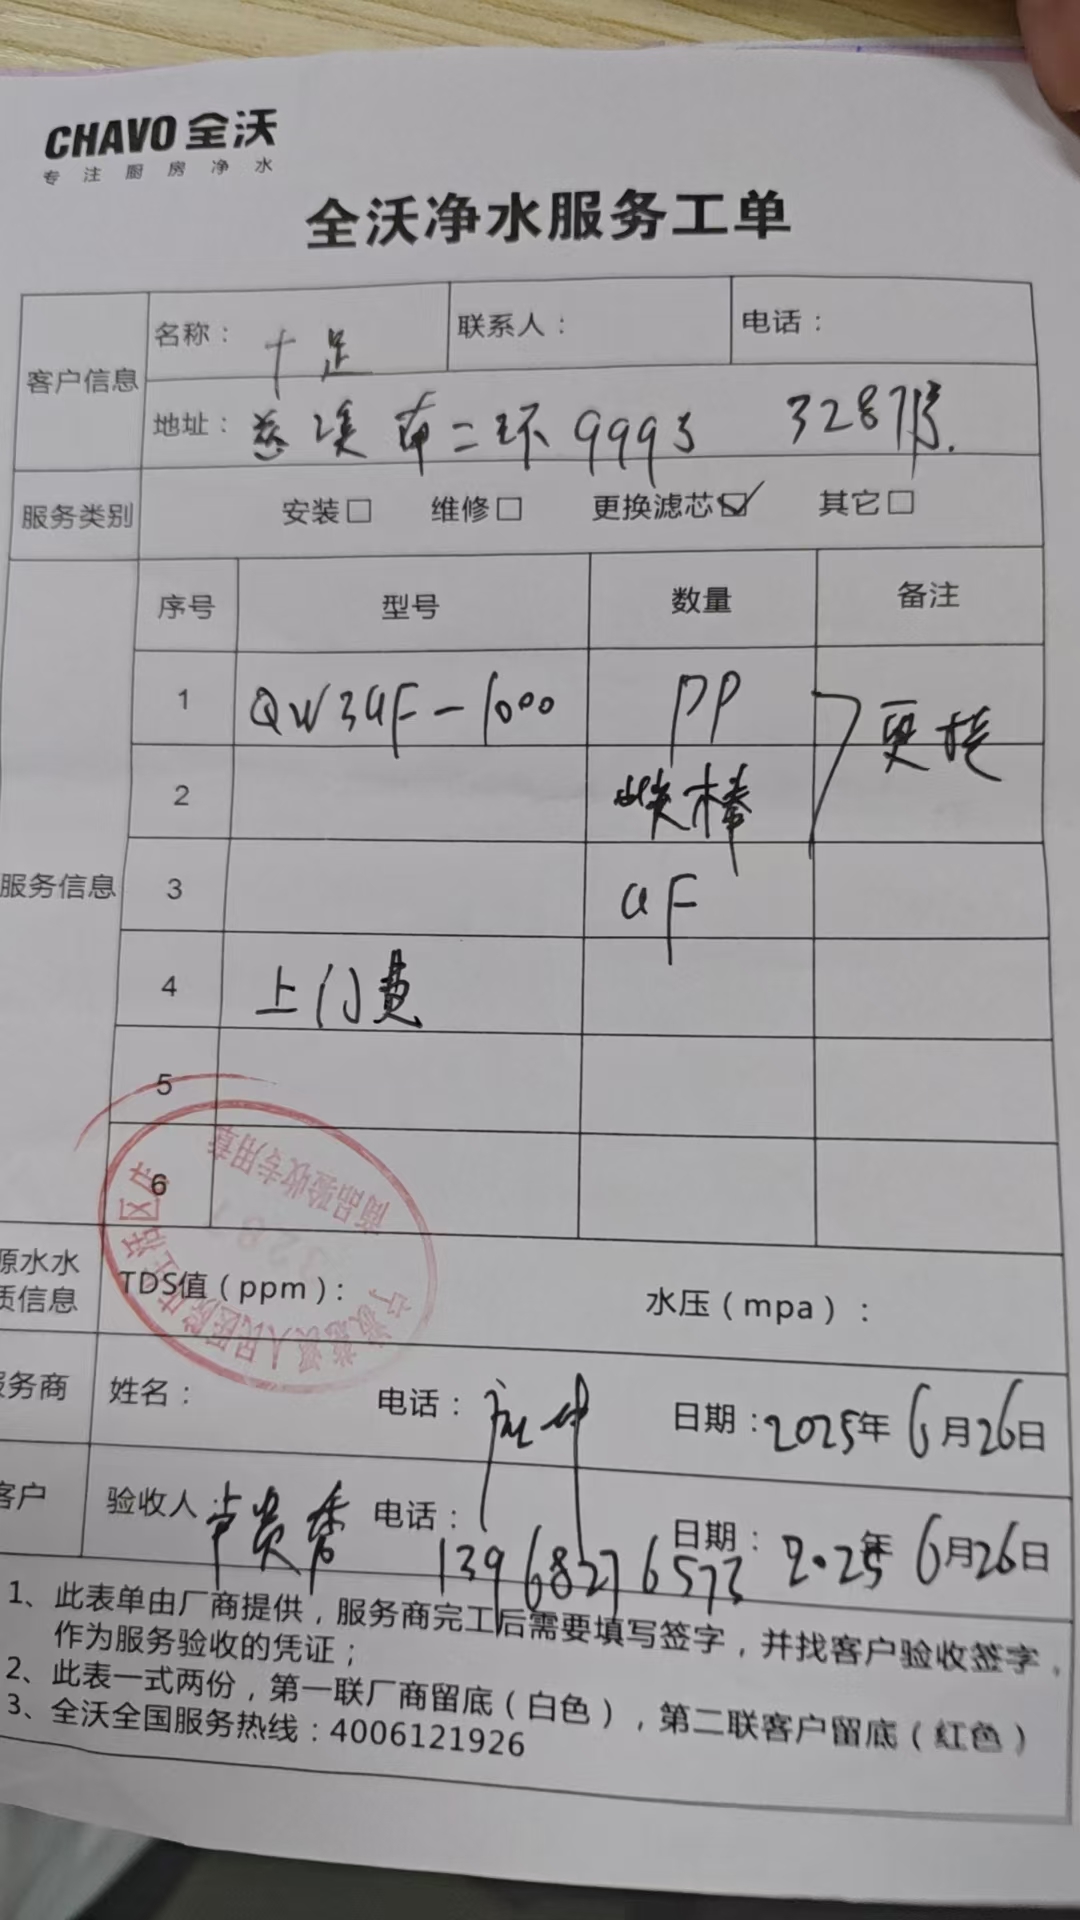 CHAVO 全沃
专注厨房净水
全沃净水服务工单
客户信息 名称：十足 联系人： 电话：
地址：慈溪南二环9993 3287
服务类别 安装□ 维修□ 更换滤芯☑ 其它□
序号 型号 数量 备注
1 QW3UF-1000 PP 更换
2 炭棒
服务信息 3 UF
4 上门费
5
6
商品验收专用章
3287
源水水质信息 TDS值（ppm）： 水压（mpa）：
服务商 姓名： 电话： 日期：2025年6月26日
客户 验收人 电话：13968276573 日期：2025年6月26日
1、此表单由厂商提供，服务商完工后需要填写签字，并找客户验收签字，
作为服务验收的凭证；
2、此表一式两份，第一联厂商留底（白色），第二联客户留底（红色）
3、全沃全国服务热线：4006121926